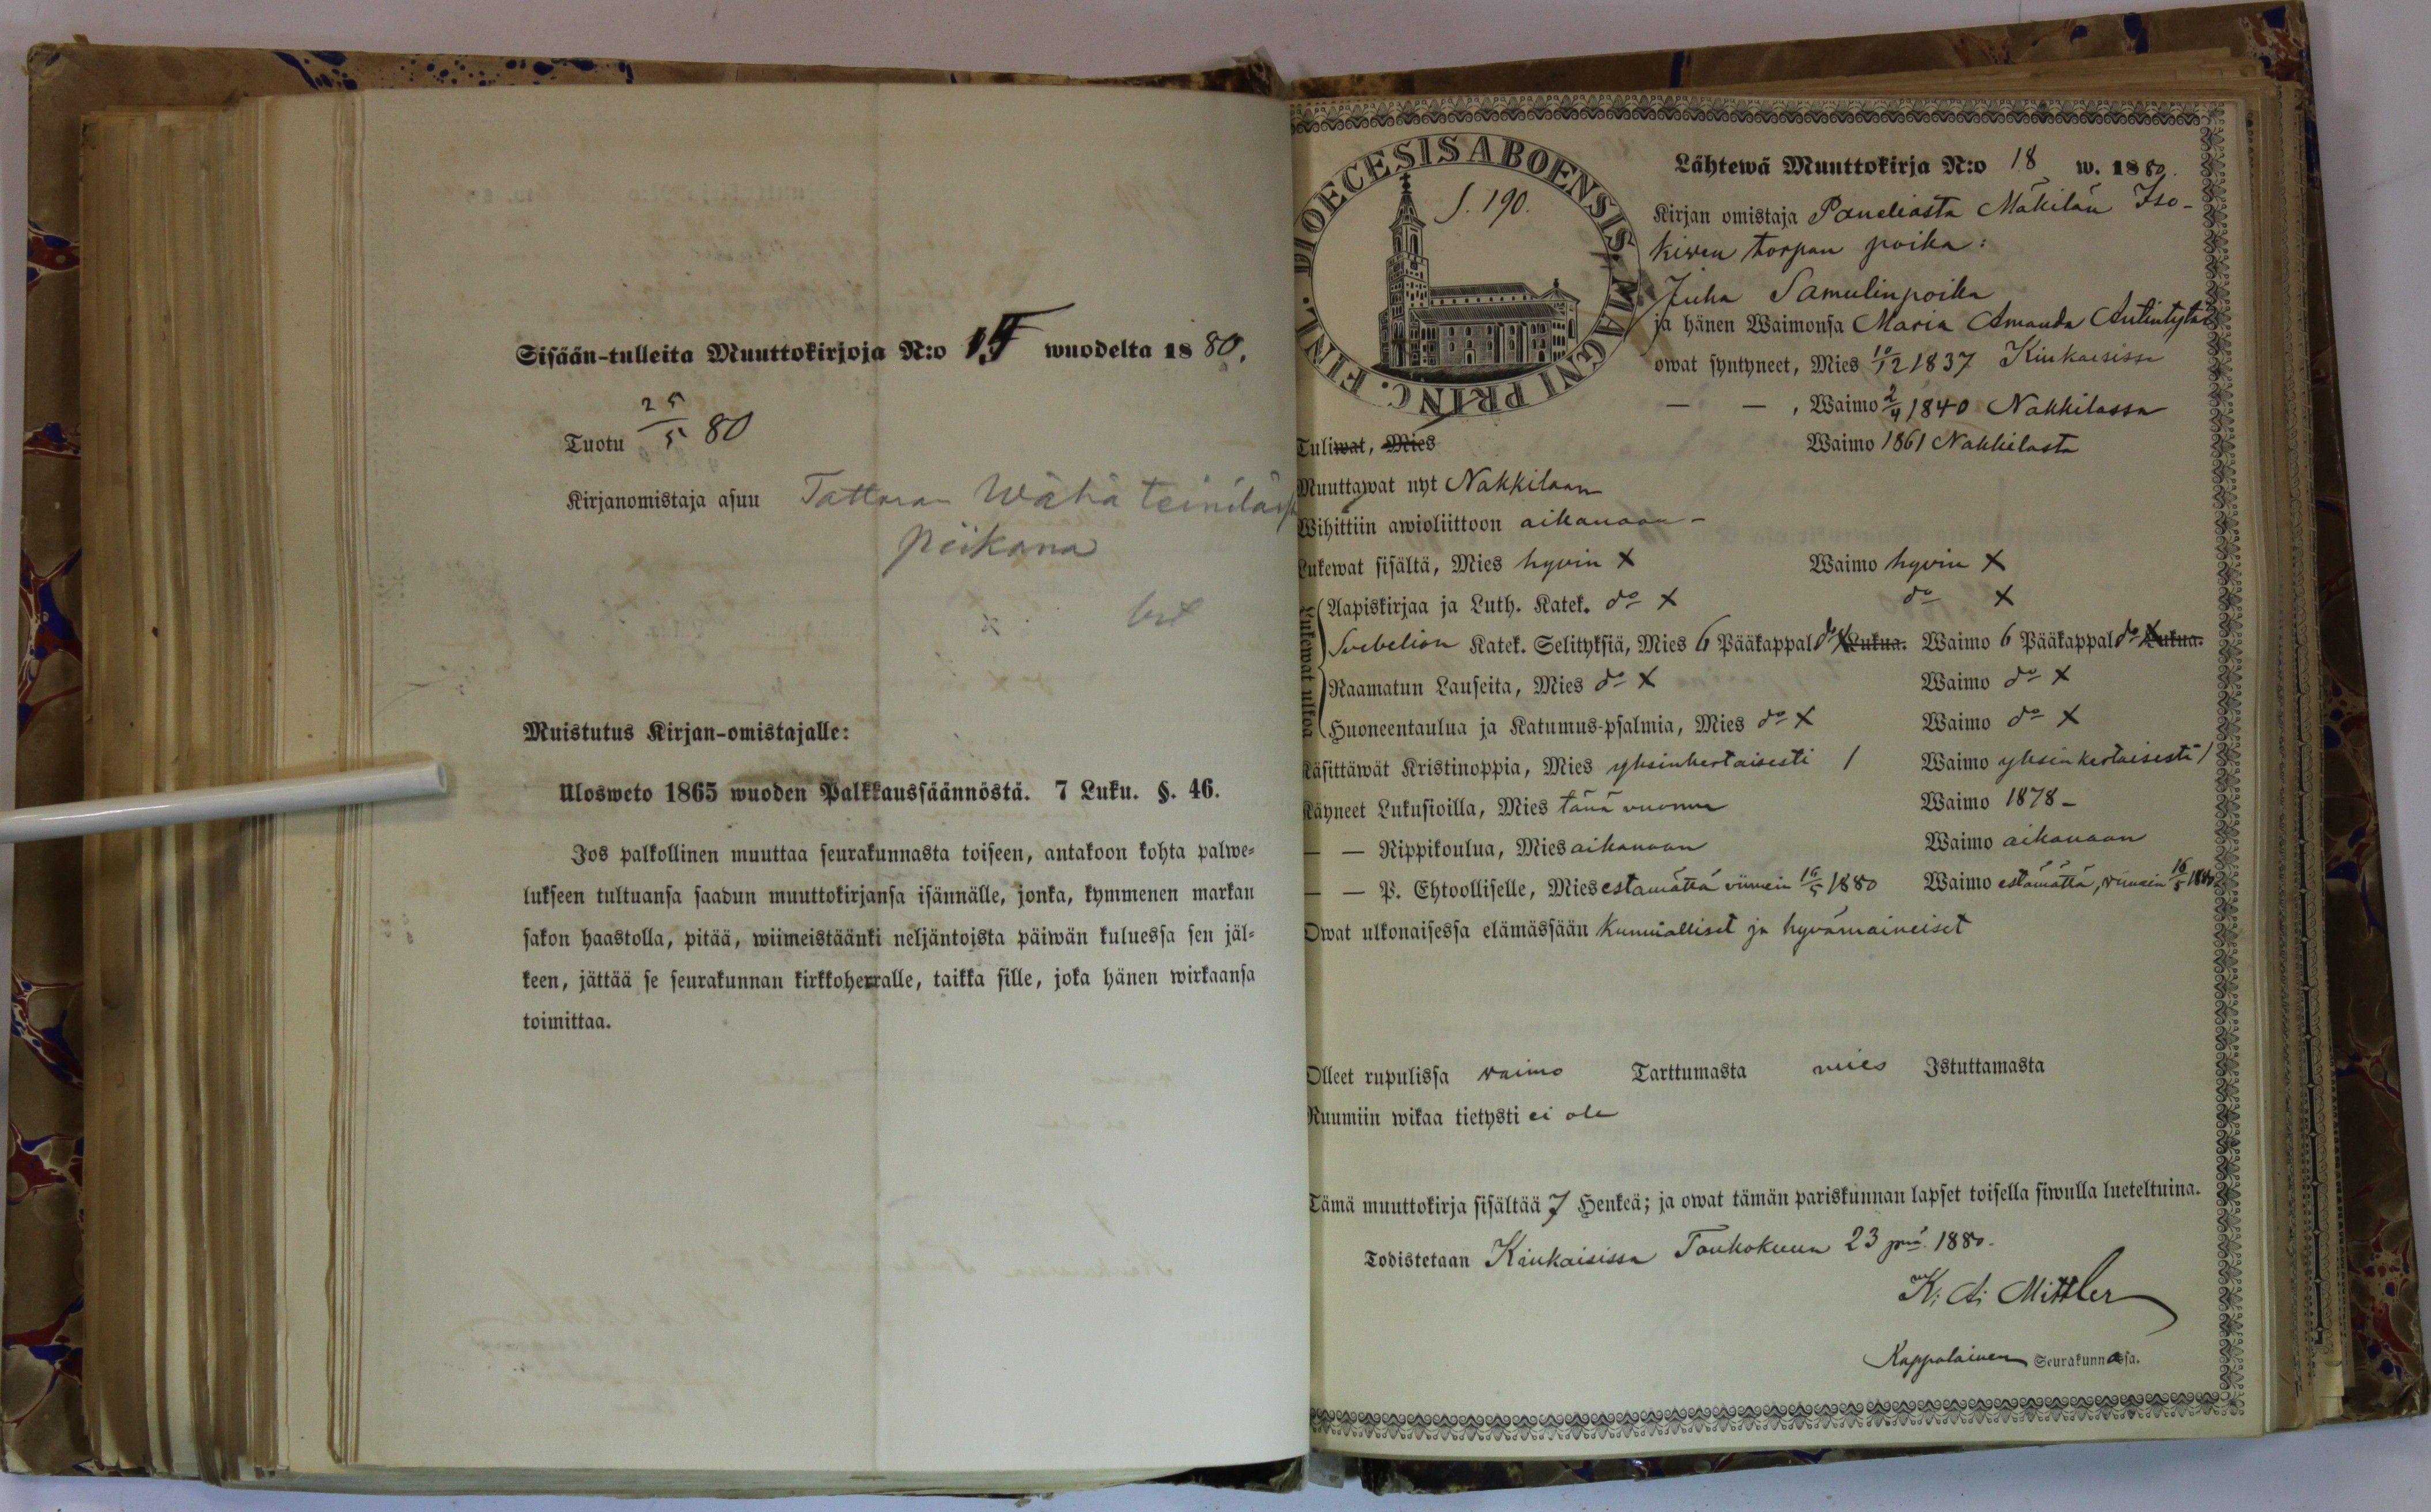 Sisään-tulleita Muuttokirjoja N:o wuodelta 1880.
Tuotu 25/5 80
Kirjanomistaja asuu Tattaran Wähä teinilässä
piikana
Muistutus Kirjan-omistajalle:
Ulosweto 1865 wuoden Palkkaussäännöstä. 7 Luku. §. 46.
Jos palkollinen muuttaa seurakunnasta toiseen, antakoon kohta palwe=
lukseen tultuansa saadun muuttokirjansa isännälle, jonka, kymmenen markan
sakon haastolla, pitää, wiimeistäänki neljäntoista päiwän kuluessa sen jäl=
keen, jättää se seurakunnan kirkkoherralle, taikka sille, joka hänen wirkaansa
toimittaa.
DIOECESIS ABOENSIS. MAGNI PRINC. FINL.
S. 190.
Lähtewä Muuttokirja N:o 18 w. 1880.
Kirjan omistaja Paneliasta Mäkilän Iso-
kiven torpan poika:
Juha Samulinpoika
ja hänen Waimonsa Maria Amanda Antintytär
owat syntyneet, Mies 10/12 1837 Kiukaisissa
— — , Waimo 2/4 1840 Nakkilassa
Tuliwat, Mies Waimo 1861 Nakkilasta
Muuttawat nyt Nakkilaan
Wihittiin awioliittoon aikanaan -
Lukewat sisältä, Mies hyvin x Waimo hyvin x
Lukewat ulkoa
Aapiskirjaa ja Luth. Katek. do x do x
Svebelion Katek. Selityksiä, Mies 6 Pääkappal do x Lukua. Waimo 6 Pääkappal do x Lukua.
Raamatun Lauseita, Mies do x Waimo do x
Huoneentaulua ja Katumus-psalmia, Mies do x Waimo do x
Käsittäwät Kristinoppia, Mies yksinkertaisesti / Waimo yksinkertaisesti /
Käyneet Lukusioilla, Mies tänä vuonna Waimo 1878 -
— — Rippikoulua, Mies aikanaan Waimo aikanaan
— — P. Ehtoolliselle, Mies estämättä viimein 16/5 1880 Waimo estämättä, viimein 16/5 1880
Owat ulkonaisessa elämässään kunnialliset ja hyvämaineiset
Olleet rupulissa vaimo Tarttumasta mies Istuttamasta
Ruumiin wikaa tietysti ei ole
Tämä muuttokirja sisältää 7 Henkeä; ja owat tämän pariskunnan lapset toisella siwulla lueteltuina.
Todistetaan Kiukaisissa Toukokuun 23 pnä 1880.
K. A. Mittler
Kappalainen Seurakunnassa.